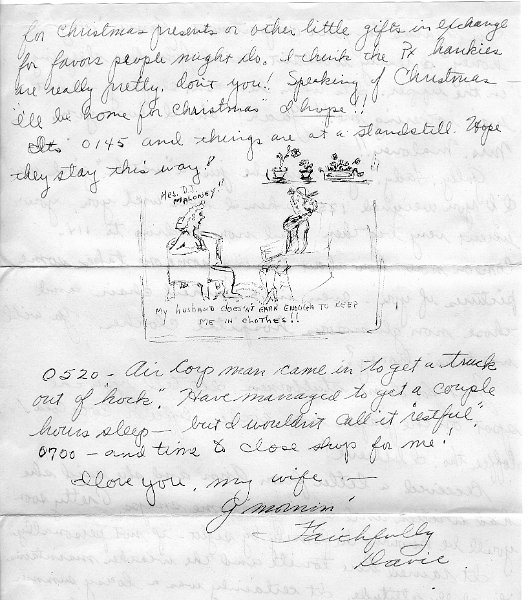 for Christmas presents or other little gifts in exchange
for favors people might do. I think the PX hankies
are really pretty, don't you! Speaking of Christmas —
I'll be home for Christmas" I hope!!
It's 0145 and things are at a standstill. Hope
they stay this way!
Mrs. DJ
MALONEY!!
My husband doesn't EARN ENOUGH TO KEEP
ME IN CLOTHES!!
0520 - Air Corp man came in to get a truck
out of "hock". Have managed to get a couple
hours sleep — but I wouldn't call it "restful".
0700 - and time to close shop for me!
I love you, my wife —
G'mornin'
Faithfully
Davie